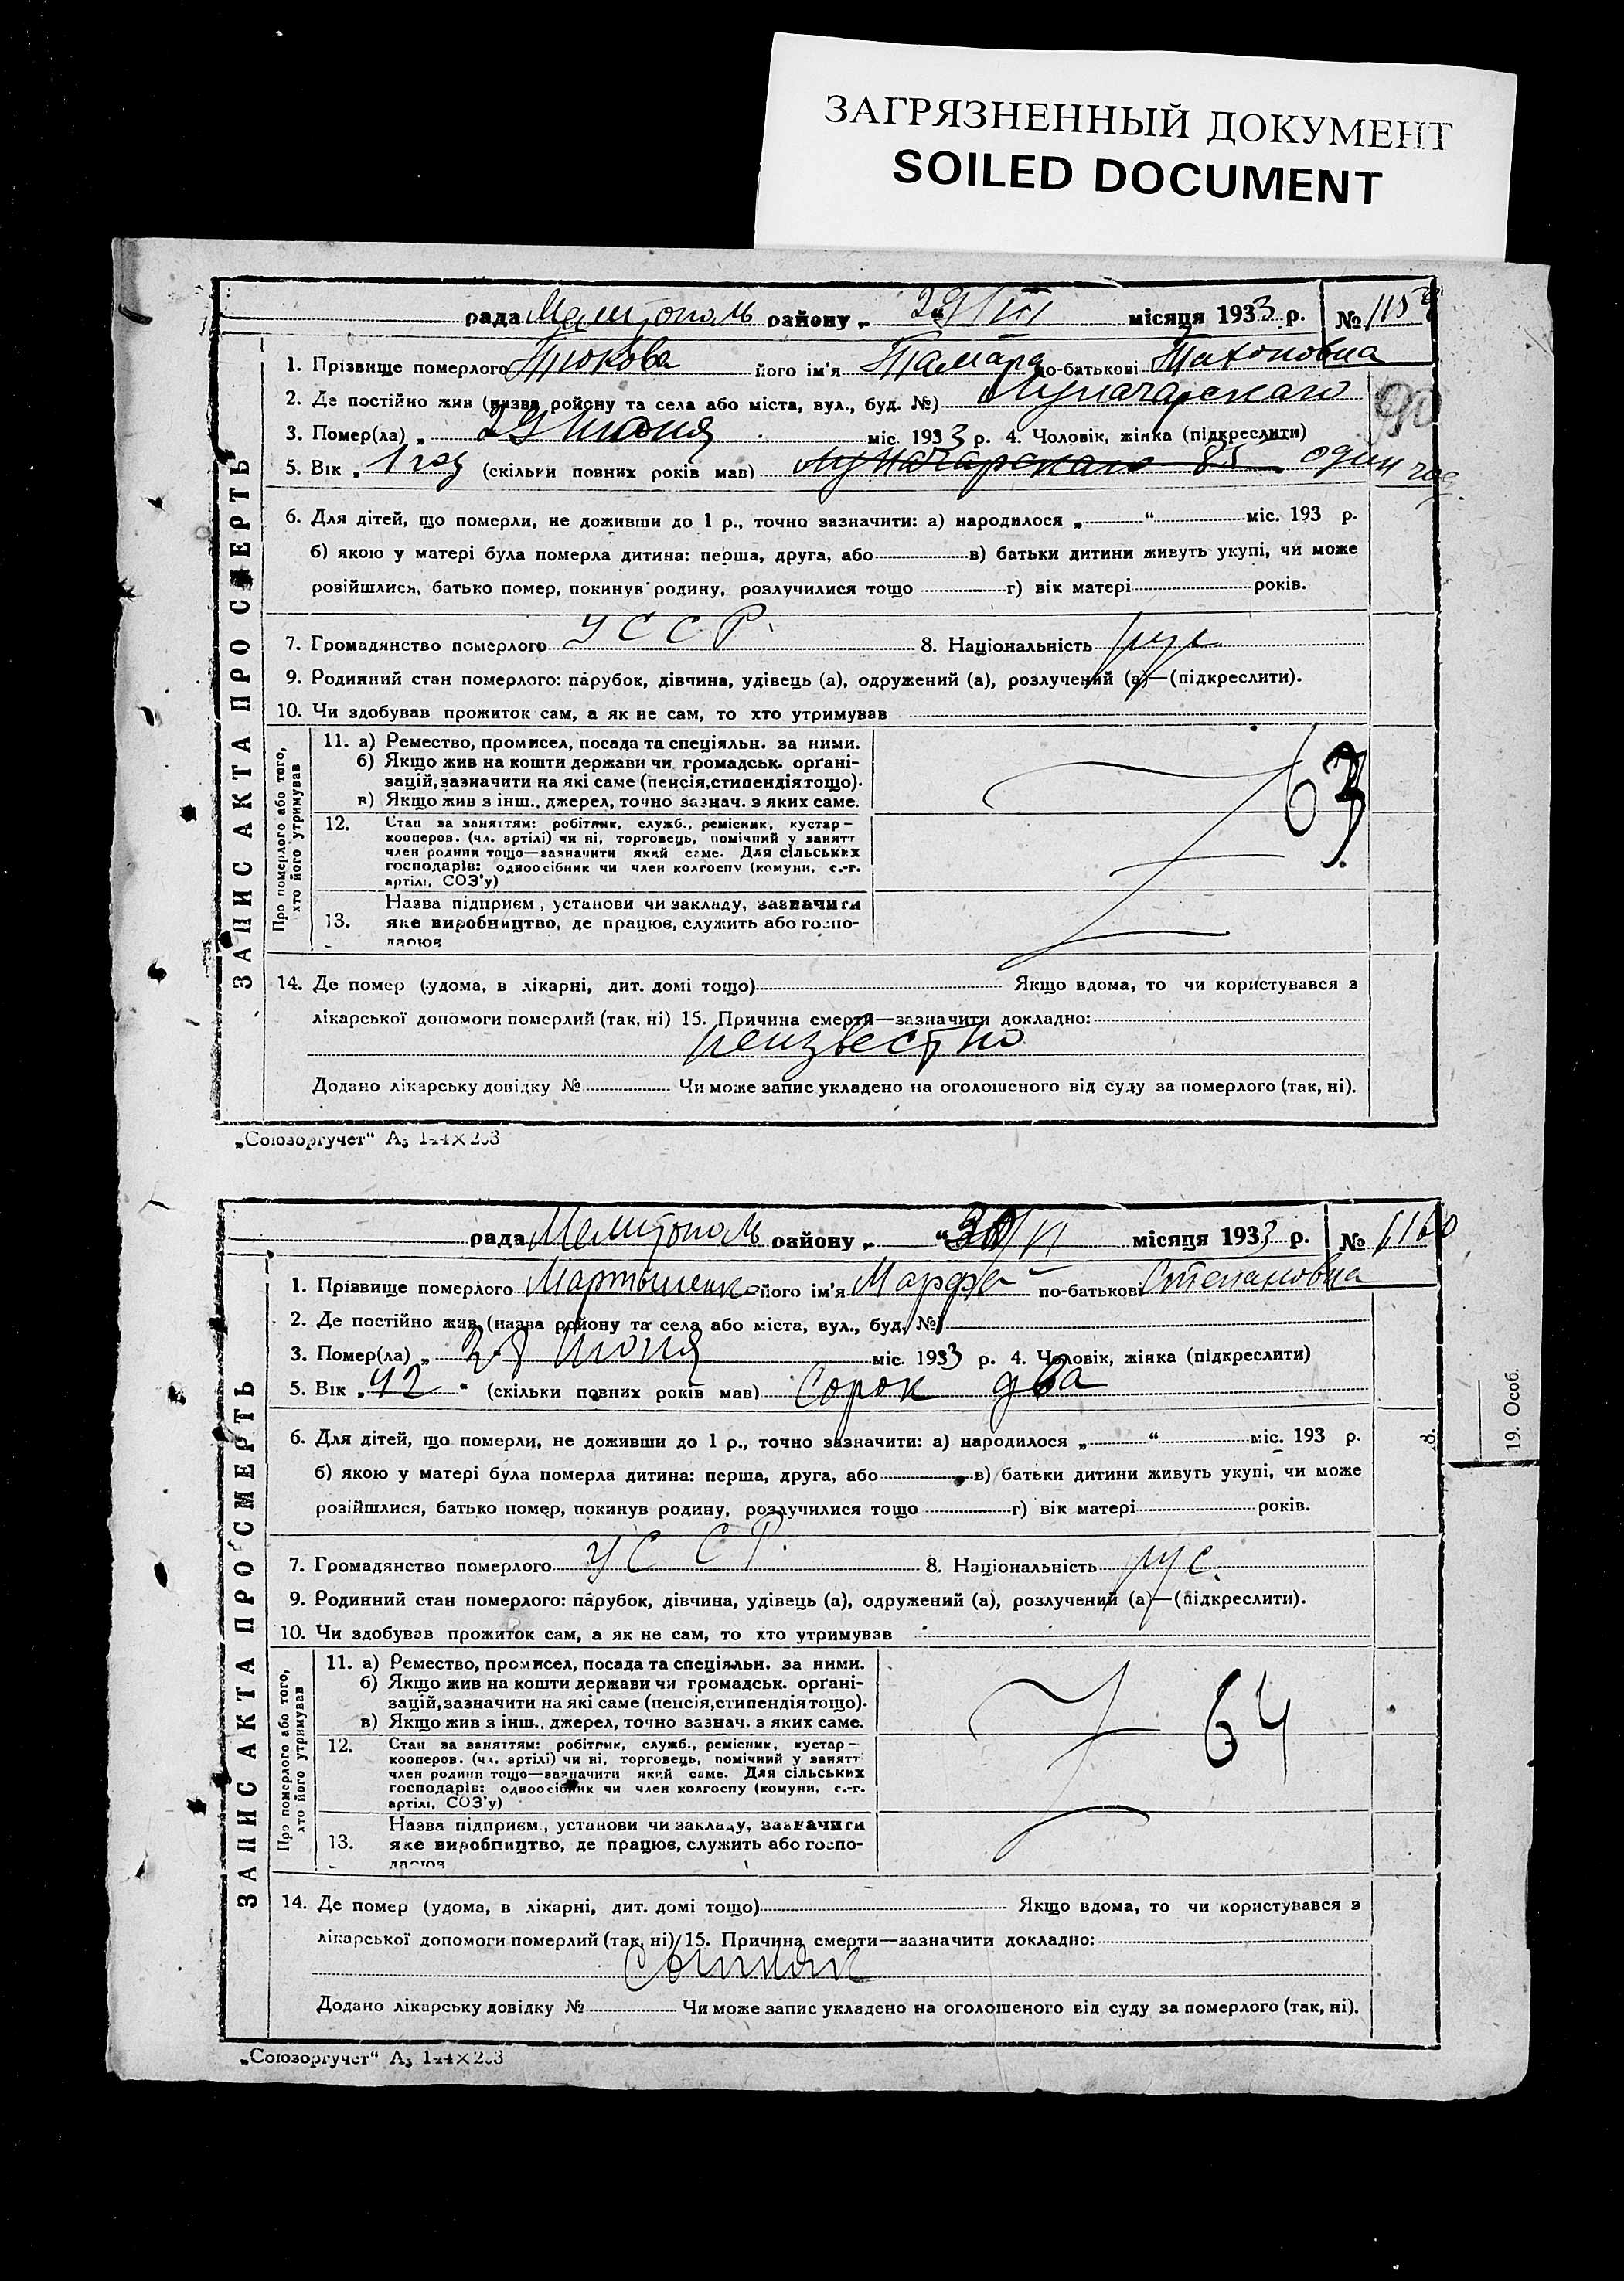 ЗАГРЯЗНЕННЫЙ ДОКУМЕНТ
SOILED DOCUMENT
рада Мелитополь району „ 29/VI місяця 1933 р. № 1159
1. Прізвище померлого Тюкова його ім'я Тамара по-батькові Тихоновна
2. Де постійно жив (назва району та села або міста, вул., буд. №) Луначарскаго
90
3. Помер(ла) „ 29 июня міс. 1933 р. 4. Чоловік, жінка (підкреслити)
5. Вік „ 1 год (скільки повних років мав) Луначарскаго 85 один год.
6. Для дітей, що померли, не доживши до 1 р., точно зазначити: а) народилося „ “ міс. 193 р.
б) якою у матері була померла дитина: перша, друга, або в) батьки дитини живуть укупі, чи може
розійшлися, батько помер, покинув родину, розлучилися тощо г) вік матері років.
7. Громадянство померлого УССР. 8. Національність рус
9. Родинний стан померлого: парубок, дівчина, удівець (а), одружений (а), розлучений (а)—(підкреслити).
10. Чи здобував прожиток сам, а як не сам, то хто утримував
ЗАПИС АКТА ПРО СМЕРТЬ
Про померлого або того, хто його утримував
11. а) Ремество, промисел, посада та спеціяльн. за ними.
б) Якщо жив на кошти держави чи громадськ. орґані-
зацій, зазначити на які саме (пенсія, стипендія тощо).
в) Якщо жив з інш.. джерел, точно зазнач. з яких саме.
63
12. Стан за заняттям: робітник, служб., ремісник, кустар—
кооперов. (чл. артілі) чи ні, торговець, помічний у занятт
член родини тощо—зазначити який саме. Для сільських
господарів: одноосібник чи член колгоспу (комуни, с.-г.
артілі, СОЗ'у)
13. Назва підприєм., установи чи закладу, зазначити
яке виробництво, де працює, служить або госпо-
дарює
14. Де помер (удома, в лікарні, дит. домі тощо) Якщо вдома, то чи користувався з
лікарської допомоги померлий (так, ні) 15. Причина смерти—зазначити докладно:
неизвестно
Додано лікарську довідку № Чи може запис укладено на оголошеного від суду за померлого (так, ні).
„Союзоргучет“ А5 144×203
рада Мелитополь району „ “30/VI місяця 1933 р. № 1160
1. Прізвище померлого Мартыненко його ім'я Марфа по-батькові Степановна
2. Де постійно жив (назва району та села або міста, вул., буд. №)
3. Помер(ла) „ июня міс. 1933 р. 4. Чоловік, жінка (підкреслити)
5. Вік „ 42 “ (скільки повних років мав) Сорок два
6. Для дітей, що померли, не доживши до 1 р., точно зазначити: а) народилося „ “ міс. 193 р.
8.
19. Особ.
б) якою у матері була померла дитина: перша, друга, або в) батьки дитини живуть укупі, чи може
розійшлися, батько помер, покинув родину, розлучилися тощо г) вік матері років.
7. Громадянство померлого УССР. 8. Національність рус.
9. Родинний стан померлого: парубок, дівчина, удівець (а), одружений (а), розлучений (а)—(підкреслити).
10. Чи здобував прожиток сам, а як не сам, то хто утримував
ЗАПИС АКТА ПРО СМЕРТЬ
Про померлого або того, хто його утримував
11. а) Ремество, промисел, посада та спеціяльн. за ними.
б) Якщо жив на кошти держави чи громадськ. орґані-
зацій, зазначити на які саме (пенсія, стипендія тощо).
в) Якщо жив з інш.. джерел, точно зазнач. з яких саме.
64
12. Стан за заняттям: робітник, служб., ремісник, кустар—
кооперов. (чл. артілі) чи ні, торговець, помічний у занятт
член родини тощо—зазначити який саме. Для сільських
господарів: одноосібник чи член колгоспу (комуни, с.-г.
артілі, СОЗ'у)
13. Назва підприєм., установи чи закладу, зазначити
яке виробництво, де працює, служить або госпо-
дарює
14. Де помер (удома, в лікарні, дит. домі тощо) Якщо вдома, то чи користувався з
лікарської допомоги померлий (так, ні) 15. Причина смерти—зазначити докладно:
Сыпняк
Додано лікарську довідку № Чи може запис укладено на оголошеного від суду за померлого (так, ні).
„Союзоргучет“ А5 144×203